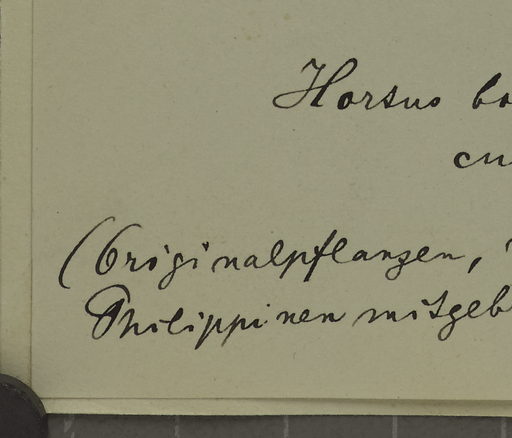 Hortus bo
cu
(Originalpflanzen,
Philippinen mitgeb